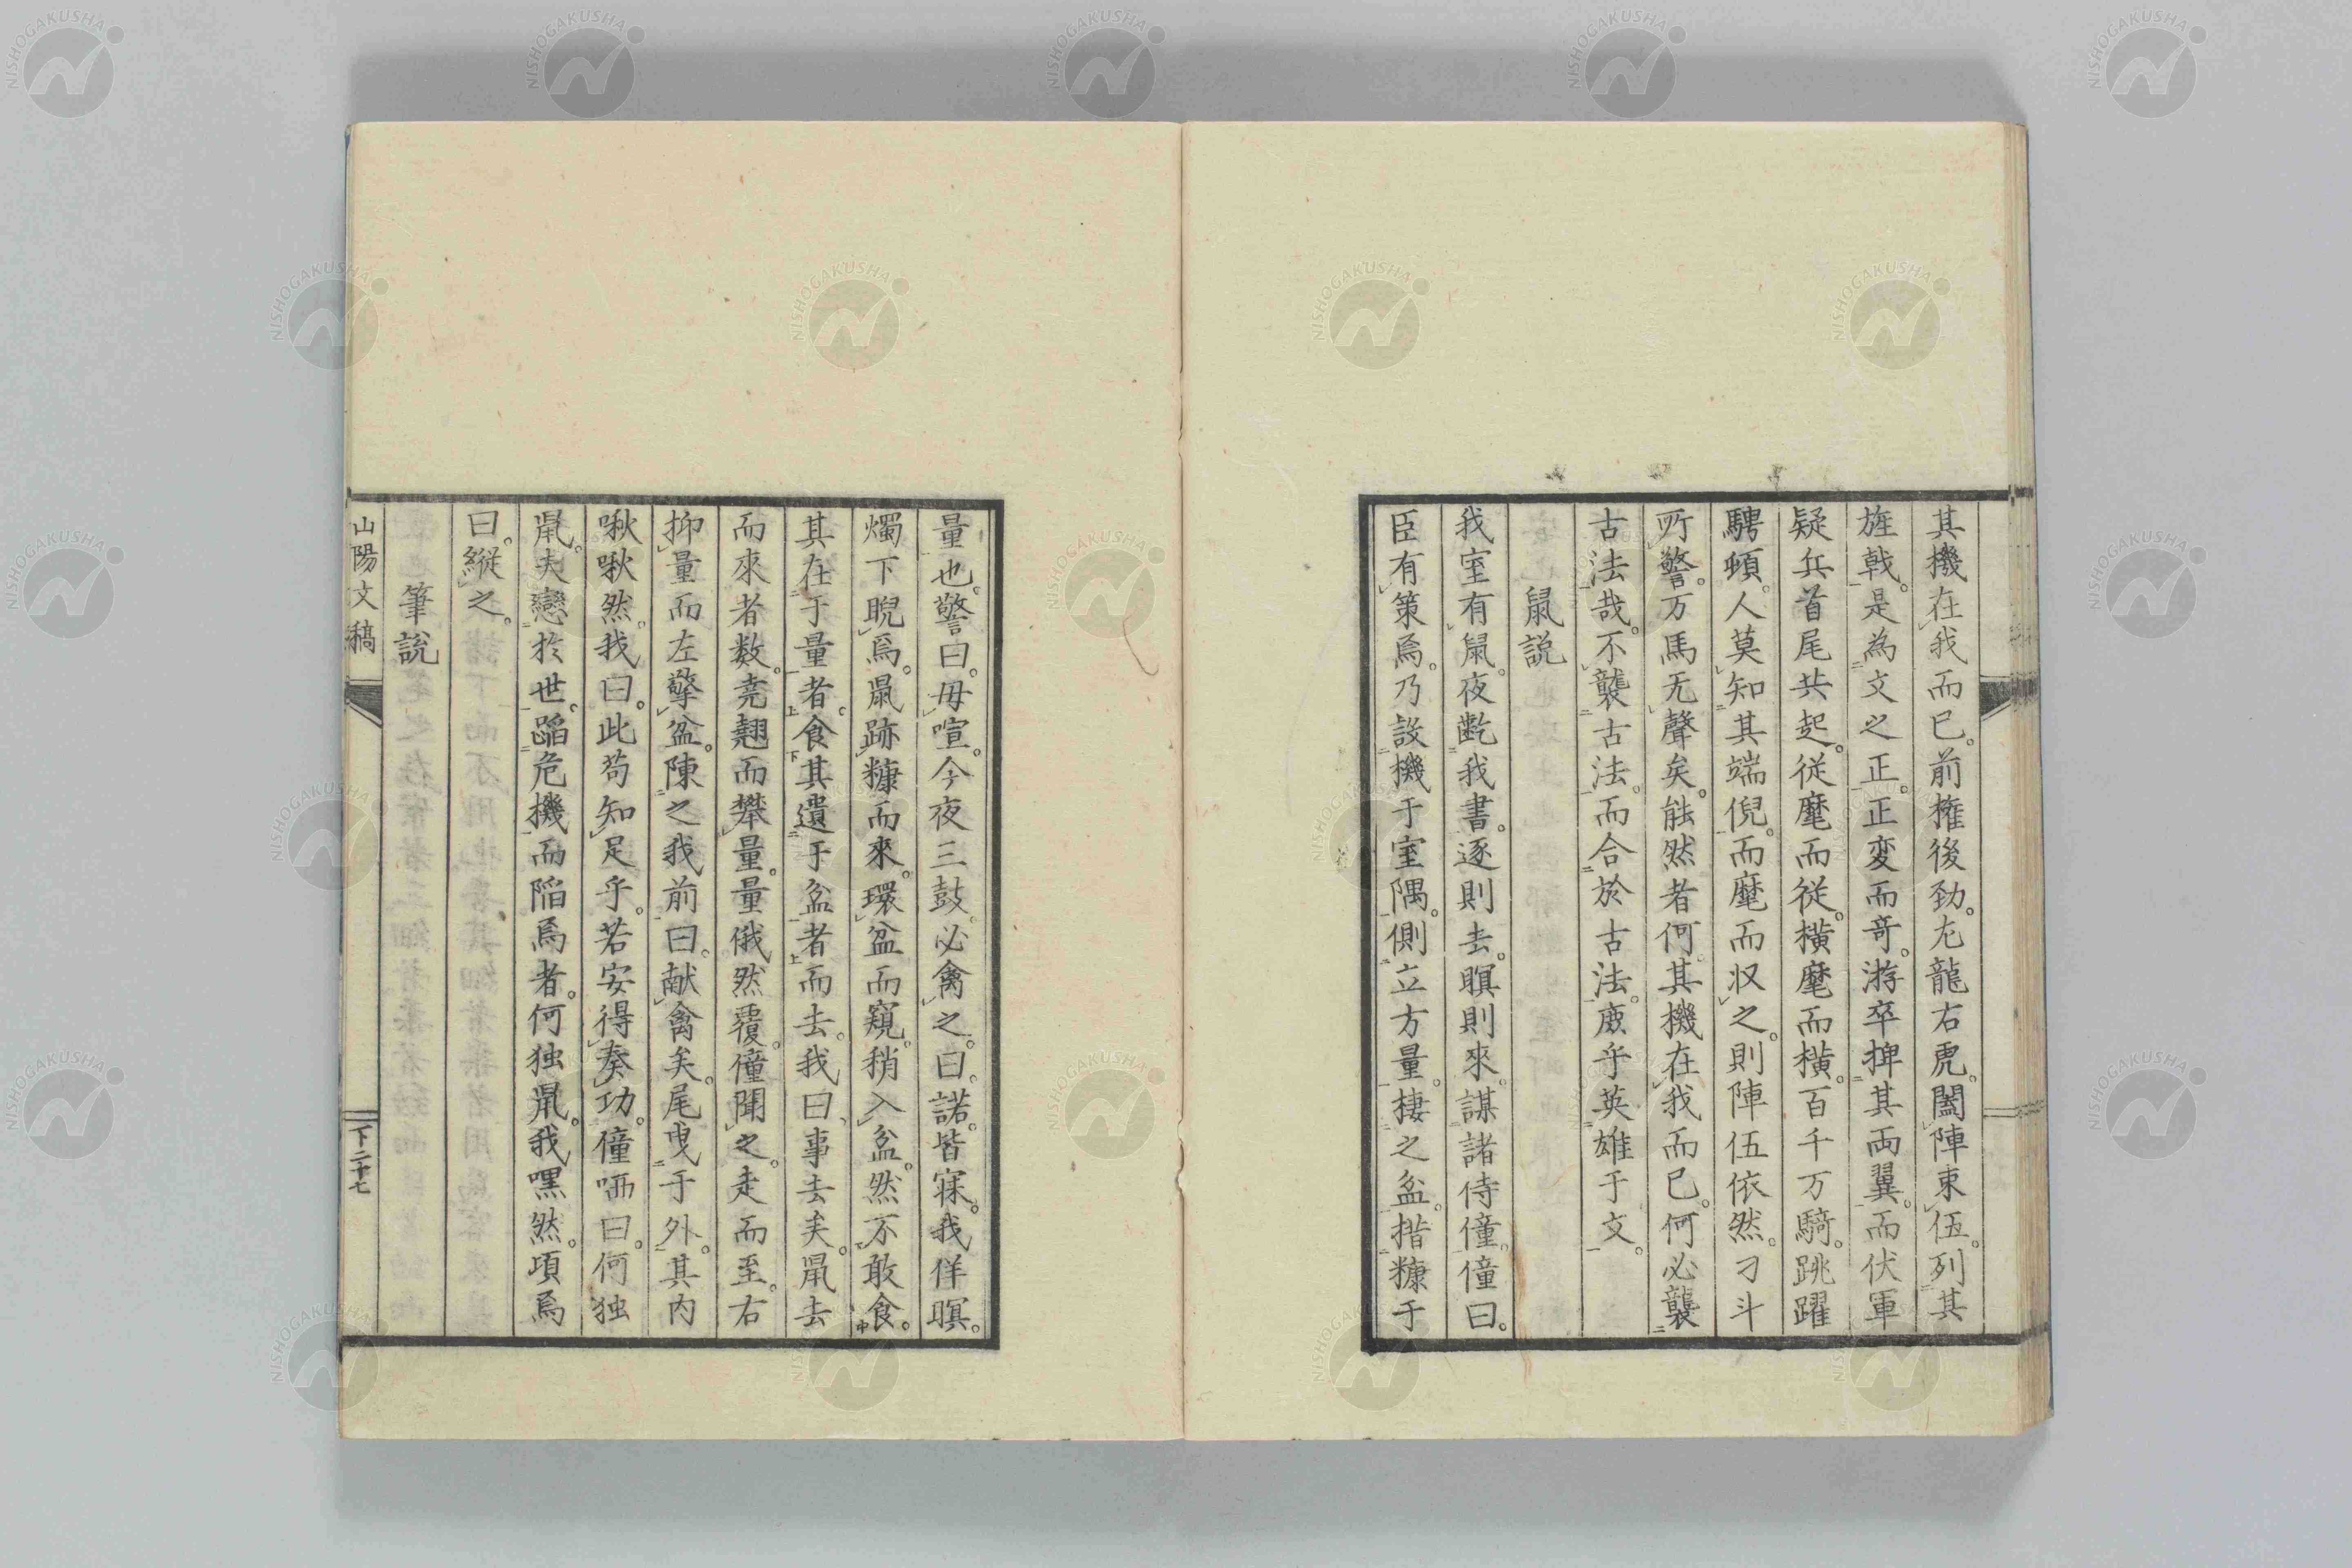 其機在我而已。前権後勁。左龍右虎。闔陣束伍。列其
旌戟。是為文之正。正変而奇。游卒捭其両翼。而伏軍
疑兵首尾共起。従麾而従。横麾而横。百千万騎。跳躍
騁頓。人莫知其端倪。而麾而収之。則陣伍依然。刁斗
所警。万馬无聲矣。能然者何。其機在我而已。何必襲
古法哉。不襲古法。而合於古法。庶乎英雄于文。
鼠説
我室有鼠。夜齕我書。逐則去。瞑則來。謀諸侍僮。僮曰。
臣有策焉。乃設機于室隅。側立方量。棲之盆。揩糠于
量也。警曰。毋喧。今夜三鼓。必禽之。曰。諾。皆寐。我佯瞑。
燭下睨焉。鼠跡糠而來。環盆而窺。稍入盆。然不敢食。
其在于量者。食其遺于盆者而去。我曰、事去矣。鼠去
而來者数。尭翹而攀量。量俄然覆。僮聞之。走而至。右
抑量而左擎盆。陳之我前曰。献禽矣。尾曳于外。其内
啾啾然。我曰。此苟知足乎。若安得奏功。僮哂曰。何独
鼠。夫戀於世。蹈危機而陥焉者。何独鼠。我嘿然。頃焉
曰。縦之。
筆説
山陽文稿
下二十七
NISHOGAKUSHA